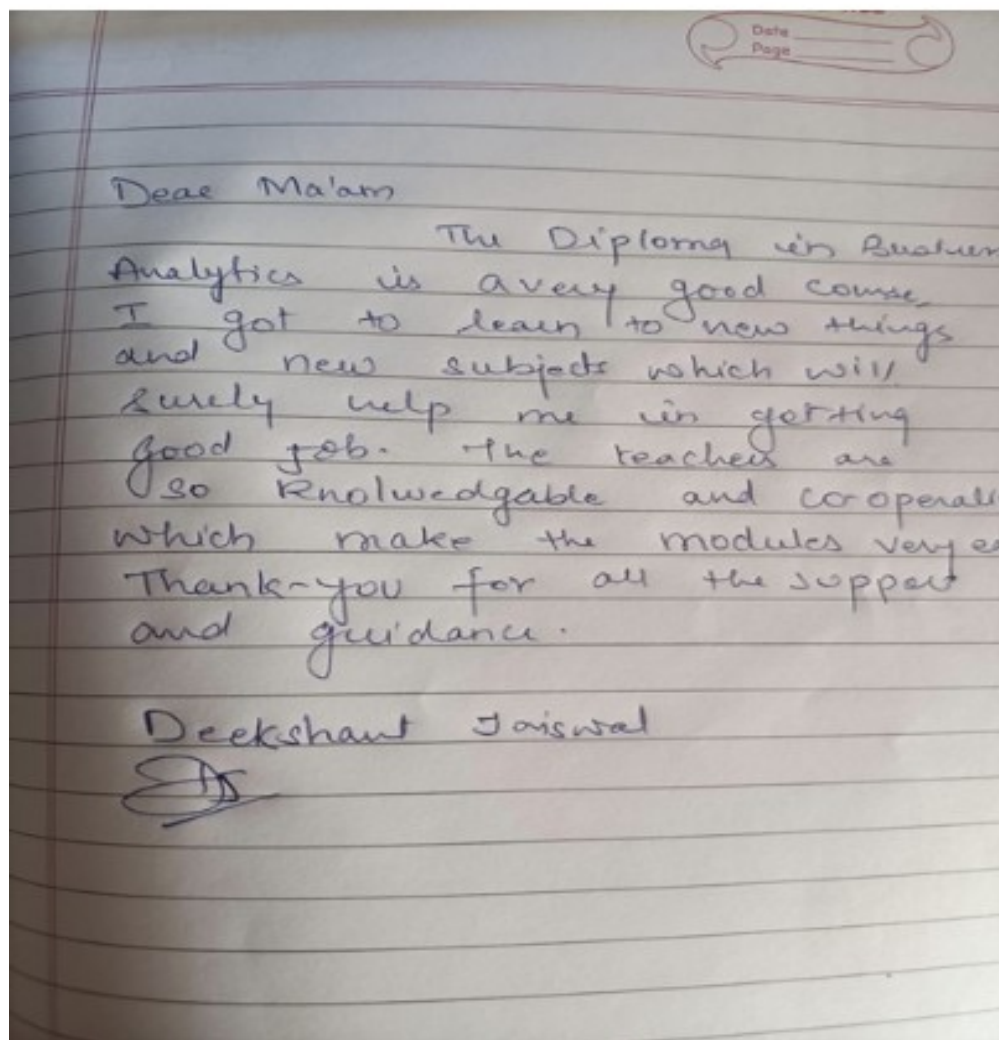 Date
Page
Dear Ma'am
The Diploma in Busines
Analytics is a very good course.
I got to learn to new things
and new subjects which will
surely help me in getting
good job. The teachers are
so Knolwedgable and co-operati
which make the modules very ea
Thank-you for all the support
and guidance.
Deekshant Jaiswal